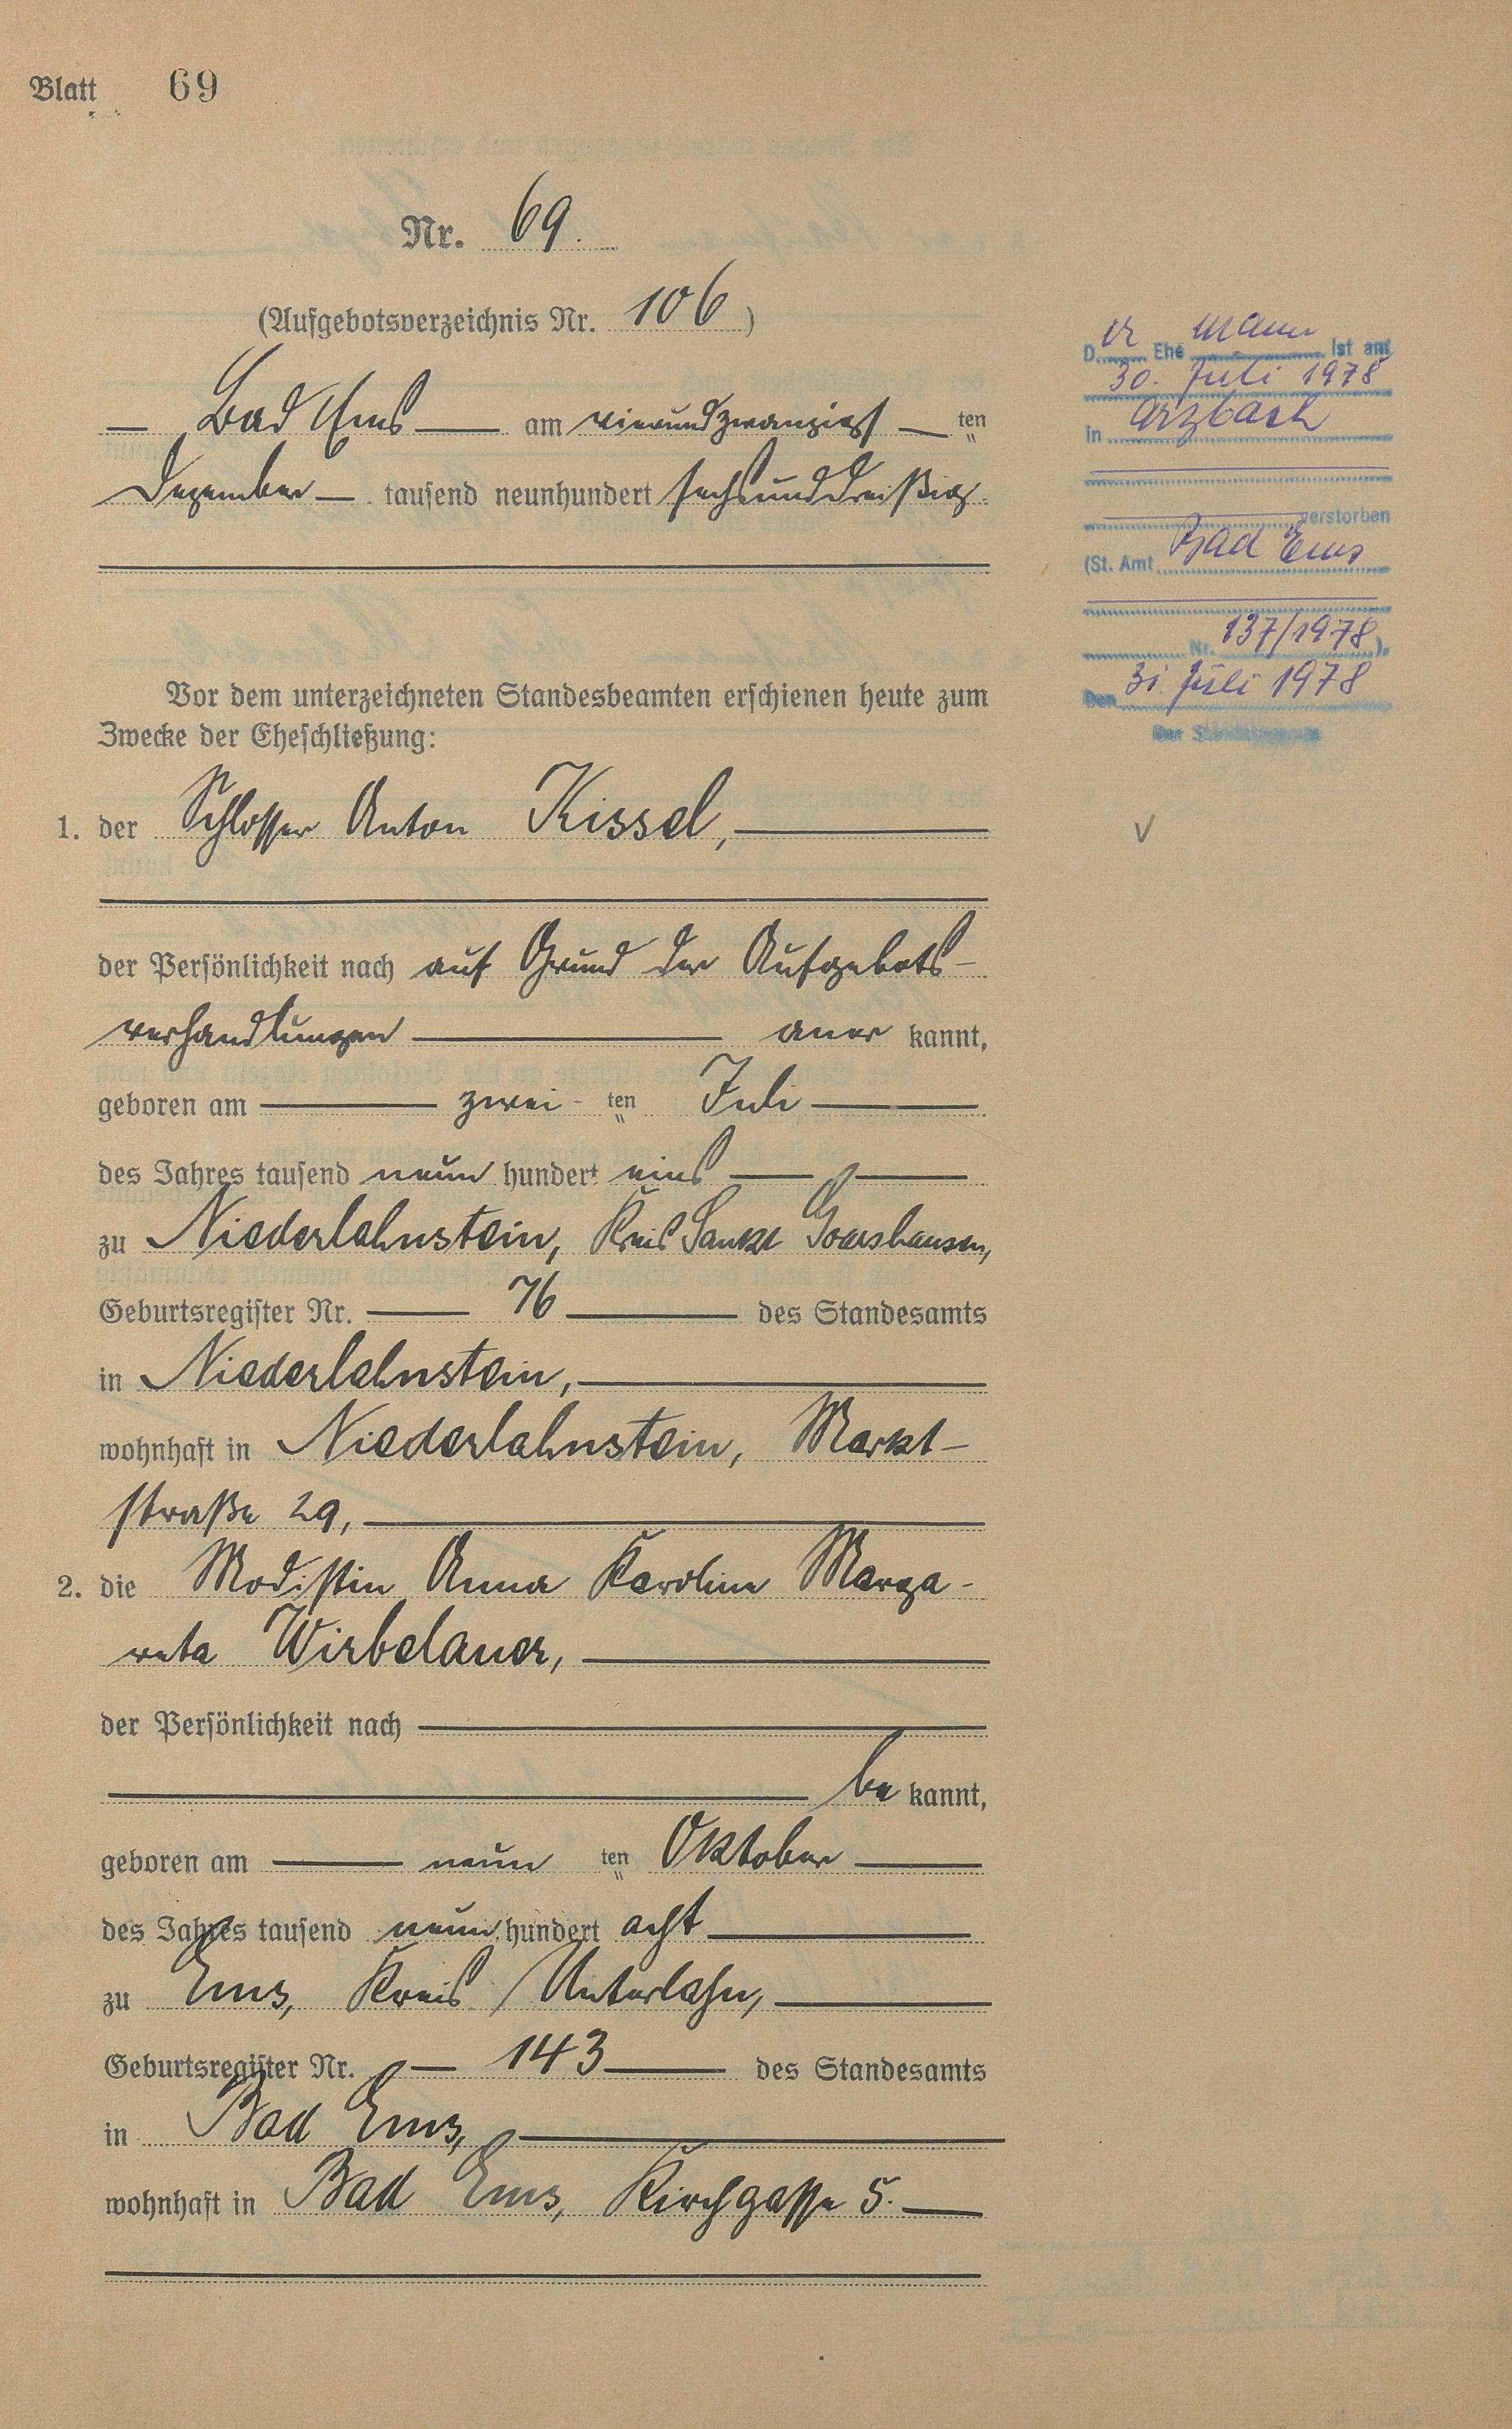 Blatt 69
Nr. 69.
(Aufgebotsverzeichnis Nr. 106)
Bad Ems am vierundzwanzigsten
Dezember tausend neunhundert sechsunddreißig.
Vor dem unterzeichneten Standesbeamten erschienen heute zum
Zwecke der Eheschließung:
1. der Schlosser Anton Kissel,
der Persönlichkeit nach auf Grund der Aufgebots-
verhandlungen aner kannt,
geboren am zwei ten Juli
des Jahres tausend neun hundert eins
zu Niederlahnstein, Kreis Sankt Goarshausen,
Geburtsregister Nr. 76 des Standesamts
in Niederlahnstein,
wohnhaft in Niederlahnstein, Markt-
straße 29,
2. die Modistin Anna Karoline Marga-
reta Wirbelauer,
der Persönlichkeit nach
be kannt,
geboren am neun ten Oktober
des Jahres tausend neun hundert acht
zu Ems, Kreis Unterlahn,
Geburtsregister Nr. 143 des Standesamts
in Bad Ems,
wohnhaft in Bad Ems, Kirchgasse 5.
Der Ehe mann ist am
30. Juli 1978
in Arzbach
verstorben
(St. Amt Bad Ems
Nr. 137/1978).
Den 31. Juli 1978
Der